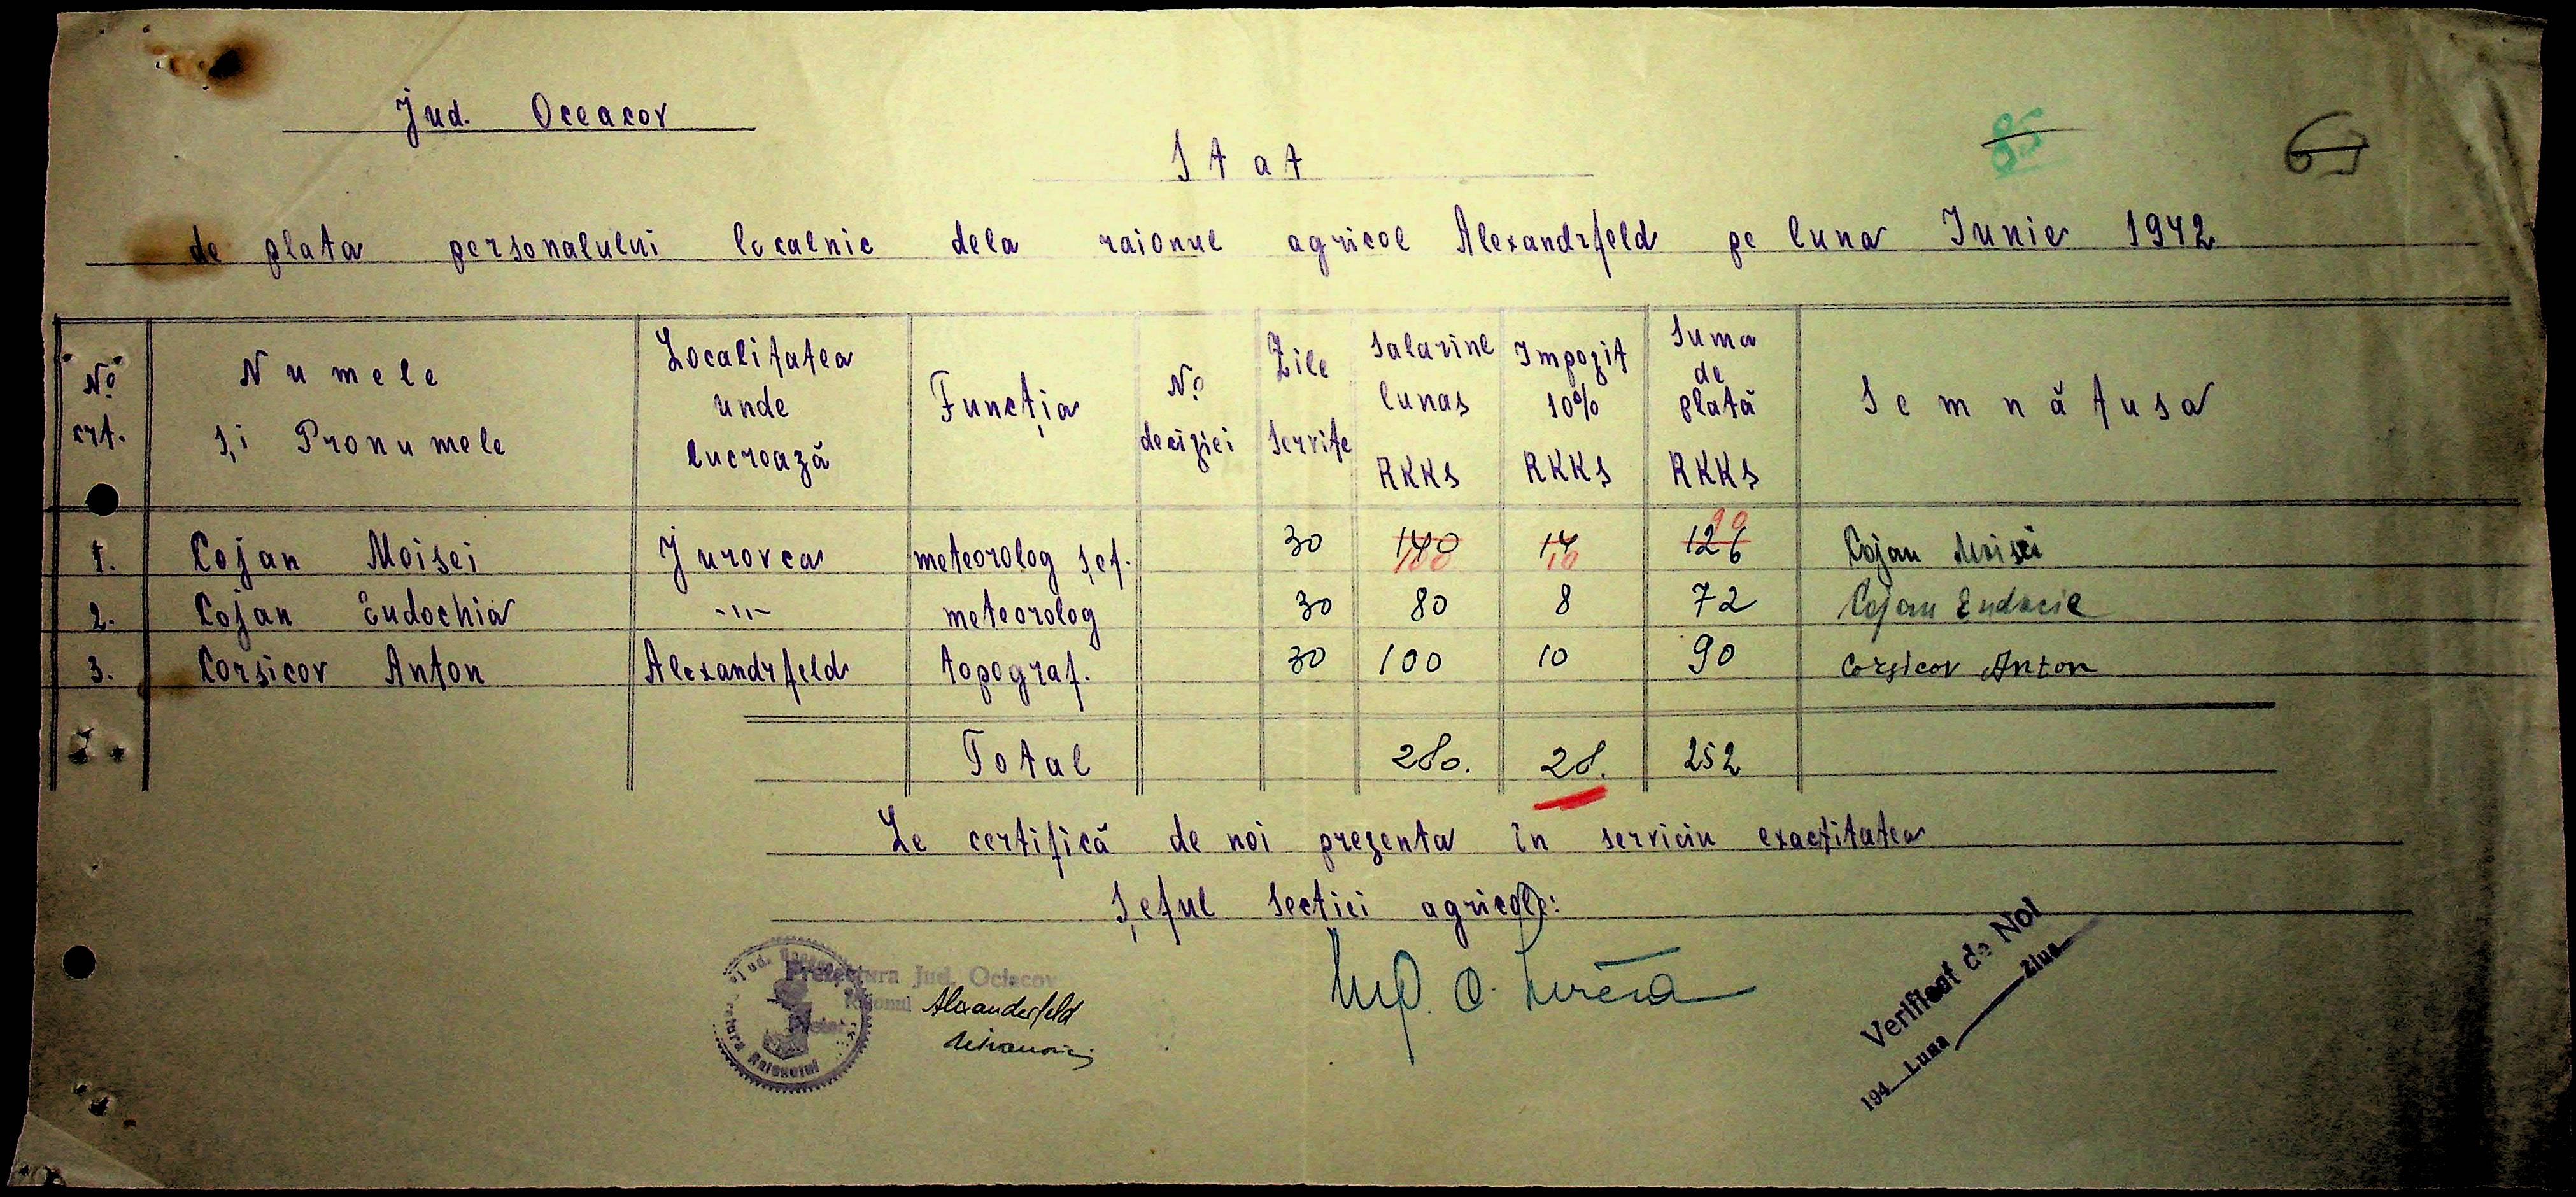 Jud. Oceacov
85
67
Stat
de plata personalului localnic dela raionul agricol Alexandrfeld pe luna Iunie 1942
No. crt. | Numele și Pronumele | Localitatea unde lucrează | Funcția | No. deciziei | Zile servite | Salariul lunar RKKS | Impozit 10% RKKS | Suma de plată RKKS | Semnătura
1. Cojan Moisei Jurovca meteorolog șef. 30 140 100 14 10 126 90 Cojan Moisei
2. Cojan Eudochia -"- meteorolog 30 80 8 72 Cojan Eudocie
3. Corsicov Anton Alexandrfeld topograf. 30 100 10 90 Corsicov Anton
Total 280. 28. 252
Se certifică de noi prezenta în serviciu exactitatea
Șeful Sectiei agricole:
Prefectura Jud. Ociacov
Raionul Alexanderfeld
Raionului
Verificat de Noi
194 Luna Ziua